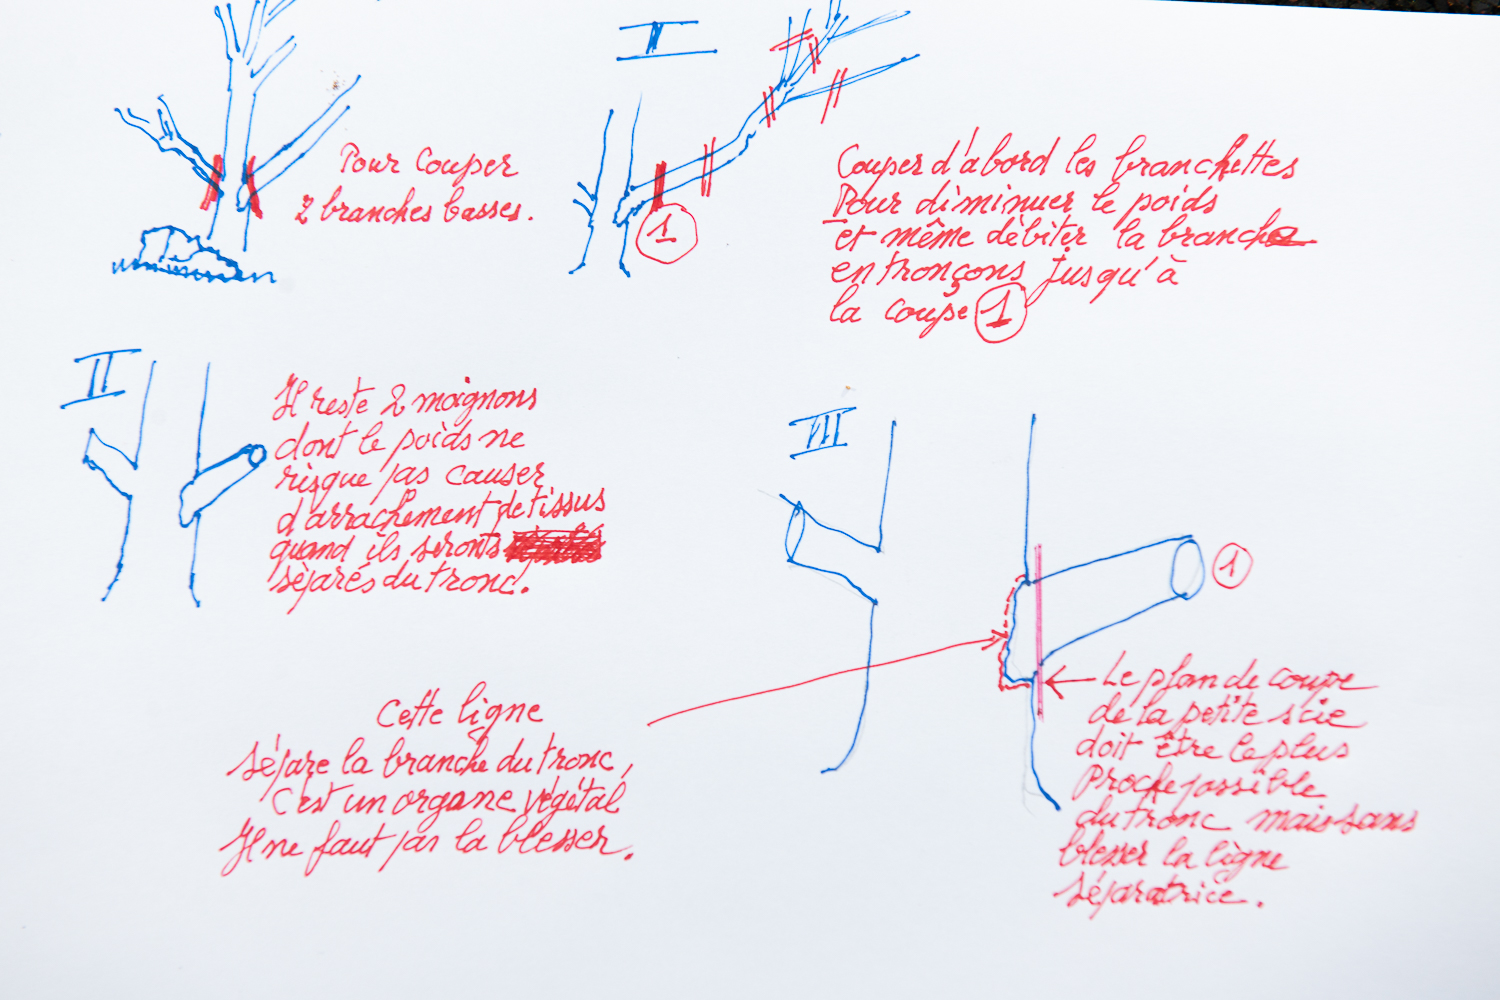 Pour couper
2 branches basses.
I
1
Couper d'abord les branchettes
Pour diminuer le poids
et même débiter la branche
en tronçons jusqu'à
la coupe 1
II
Il reste 2 moignons
dont le poids ne
risque pas causer
d'arrachement de tissus
quand ils seronts
séparés du tronc.
III
1
Cette ligne
sépare la branche du tronc,
C'est un organe végétal
Il ne faut pas la blesser.
Le plan de coupe
de la petite scie
doit être le plus
Proche possible
du tronc mais sans
blesser la ligne
séparatrice.